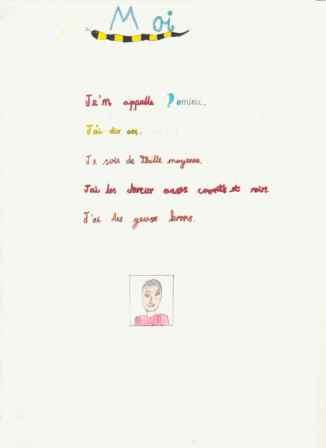 Moi
Je'm appelle Domieu.
J'ai dix ans.
Je suis de taille moyenne.
J'ai les cheveux assez courts et noir
J'ai les yeuse brons.